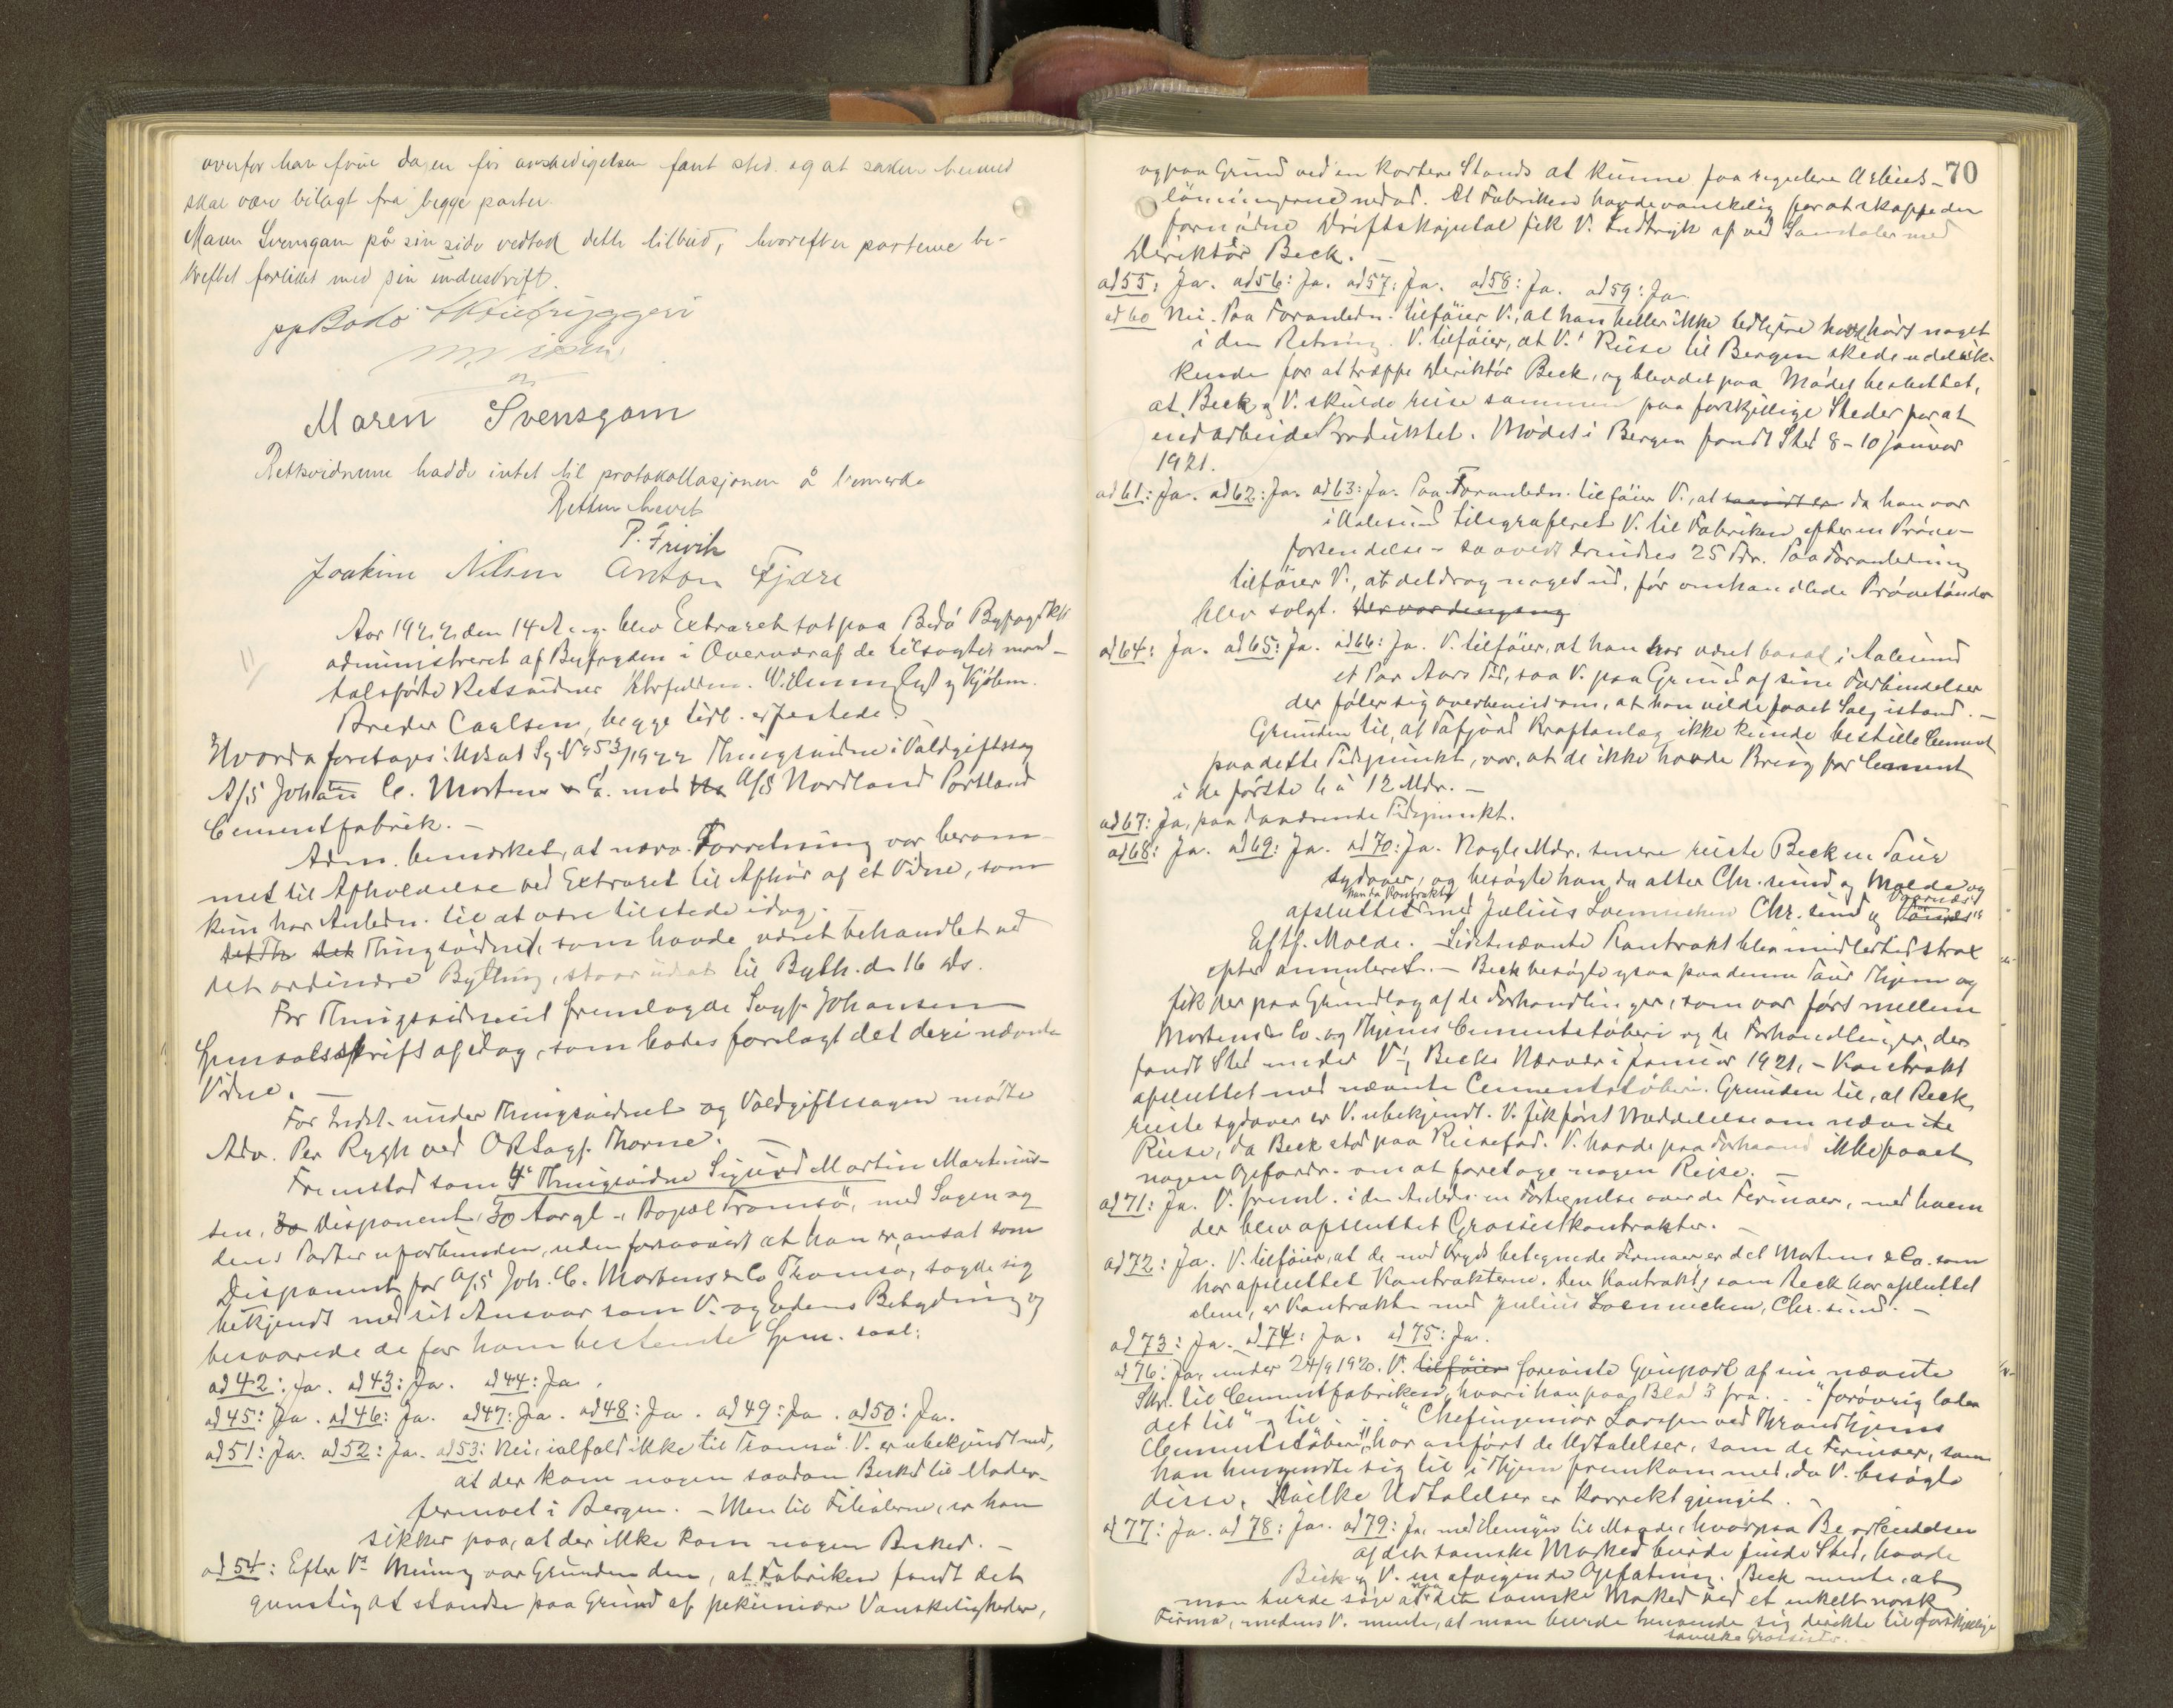 overfor hav frue dagen før avskedigelsen fant sted og at saken hermed
skal være bilagt fra begge parter.
Maren Svensgam på sin side vedtok dette tilbud, hvorefter parterne be-
kreftet forliket med sin underskrift.
pp Bodø
Maren Svensgam
Rettsvidnerne hadde intet til protokollasjonen å bemerke
Retten hevet
P. Frivik
Joakim Nilsen Anton Fjære
Aar 1922 den 14 Aug. blev Extraret sat paa Bodø Byfogdktr
administreret af Byfogden i Overværaf de tilsagte mod-
talsførte Retsvidner Khrfuldm. W. Lyst og Kjøbm.
Breder Carlsen, begge tidl. erfestede.
Hvorda foretoges: Udsat Sg. Nr 53/1922 Thingsvidne i Voldgiftssag
A/S Johan C. Martens & Co. mod A/S Nordland Portland
Cementfabrik. –
Adm. bemærket, at nærv. Forretning var beram-
met til Afholdelse ved Extraret til Afhør af et Vidne, som
kun har Anledn. til at være tilstede idag.
Det Th Det Thingsvidnet, som havde været behandlet ved
det ordinære Bything, staar udsat til Byth. d. 16 ds.
For Thingsvidnet fremlagde Sagf. Johansen
Genvalsskrift af idag, som bades forelagt det deri nævnte
Vidne. –
For Indst. under Thingsvidnet og Voldgiftssagen mødte
Adv. Per Rygh ved ORSagf. Thorne. –
Fremstod som 4' Thingsvidne Sigurd Martin Martinus-
sen, 30 Disponent, 30 Aar gl. – Bopæl Tromsø, med Sagen og
dens Parter uforbunden, uden forsaavidt at han er ansat som
Disponent for A/S Joh. C. Martens & Co Tromsø, sagde sig
bekjendt med sit Ansvar som V. og Edens Betydning og
besvarede de for ham bestemte Spm. saal:
ad 42: Ja. ad 43: Ja. ad 44: Ja.
ad 45: Ja. ad 46: Ja. ad 47: Ja. ad 48: Ja. ad 49: Ja. ad 50: Ja.
ad 51: Ja. ad 52: Ja. ad 53: Nei, ialfald ikke til Tromsø. V. er ubekjendt med,
at der kom nogen saadan Besked til Moder-
firmaet i Bergen. – Men til Filialerne, er han
sikker paa, at der ikke kom nogen Besked. –
ad 54: Efter Vs Mening var Grunden den, at Fabriken fandt det
gunstig at standse paa Grund af pekuniære Vanskeligheder,
70
og paa Grund ved en kortere Stands at kunne faa regulere Arbeids-
lønningerne nedad. At Fabriken havde vanskelig for at skaffe den
fornødne Driftskapital fik V. Indtryk af ved Samtaler med
Direktør Beck. –
ad 55: Ja. ad 56: Ja. ad 57: Ja. ad 58: Ja. ad 59: Ja.
ad 60 Nei. Paa Foranledn. tilføier V., at han heller ikke har hørt noget
i den Retning. V. tilføier, at V.s Reise til Bergen skede udeluk-
kende for at træffe Direktør Beck, og blev det paa Mødet besluttet,
at Beck og V. skulde reise sammen paa forskjellige Steder for at
indarbeide Produktet. Mødet i Bergen fandt Sted 8–10 Januar
1921.
ad 61: Ja. ad 62: Ja. ad 63: Ja. Paa Foranledn. tilføier V., at saavidt da han var
i Aalesund tilegraferet V. til Fabriken efter en Prøve-
forsendelse – saavidt erindres 25 Tdr. Paa Foranledning
tilføier V., at det drog noget ud, før omhandlede Prøvetønder
blev solgt. Der var dengang
ad 64: Ja. ad 65: Ja. ad 66: Ja. V. tilføier, at han har været bosat i Aalesund
et Par Aars Tid, saa V. paa Grund af sine Forbindelser
der føler sig overbevist om, at han vilde faaet Salg istand. –
Grunden til, at Tafjord Kraftanlæg ikke kunde bestille Cement
paa dette Tidspunkt, var, at de ikke havde Brug for Cement
i de første 6 à 12 Mdr. –
ad 67: Ja, paa daværende Tidspunkt.
ad 68: Ja. ad 69: Ja. ad 70: Ja. Nogle Mdr. senere reiste Beck en Tour
sydover, og besøgte han da atter Chr. sund og Molde og
afsluttet han da Kontrakt med Julius Loennechen Chr. sund og
Eftf. Molde. Sidstnævnte Kontrakt blev imidlertid strax
efter annuleret. – Beck besøgte ogsaa paa denne Tour Thjem og
fik her paa Grundlag af de Forhandlinger, som var ført mellem
Martens & Co. og Thjems Cementstøberi og de Forhandlinger, der
fandt Sted under V. og Becks Nærvær i Januar 1921, – Kontrakt
afsluttet med nævnte Cementstøberi. Grunden til, at Beck
reiste sydover er V. ubekjendt. V. fik først Meddelelse om nævnte
Reise, da Beck stod paa Reisefod. V. havde paa Forhaand ikke faaet
nogen Opfordr. om at foretage nogen Rejse. –
ad 71: Ja. V. freml. i den Anledn. en Fortegnelse over de Firmaer, med hvem
der blev afsluttet Grossistkontrakter. –
ad 72: Ja. V. tilføier, at de med Kryds betegnede Firmaer er det Martens & Co. som
har afsluttet Kontrakterne. Den Kontrakt, som Beck har afsluttet
alene, er Kontrakten med Julius Loennechen, Chr. sund. –
ad 73: Ja. ad 74: Ja. ad 75: Ja.
ad 76: Ja, under 24/9 1920. V. tilføier foreviste Genpart af sin nævnte
Skr. til Cementfabriken, hvori han paa Blad 3 fra . . "forøvrig lader
det til" og til . . . "Chefingeniør Larssen ved Throndhjems
Cementstøberi", har anført de Udtalelser, som de Firmaer, som
han henvendte sig til i Thjem fremkom med, da V. besøgte
disse, hvilke Udtalelser er korrekt gjengit. –
ad 77: Ja. ad 78: Ja. ad 79: Ja, med Hensyn til Maade, hvorpaa Bearbeidelsen
af det svenske Marked burde finde Sted, havde
Beck og V. en afvigende Opfatning. Beck mente, at
man burde søge at naa det svenske Marked ved et enkelt norsk
Firma, medens V. mente, at man burde henvende sig direkte til forskjellige
svenske Grossister.